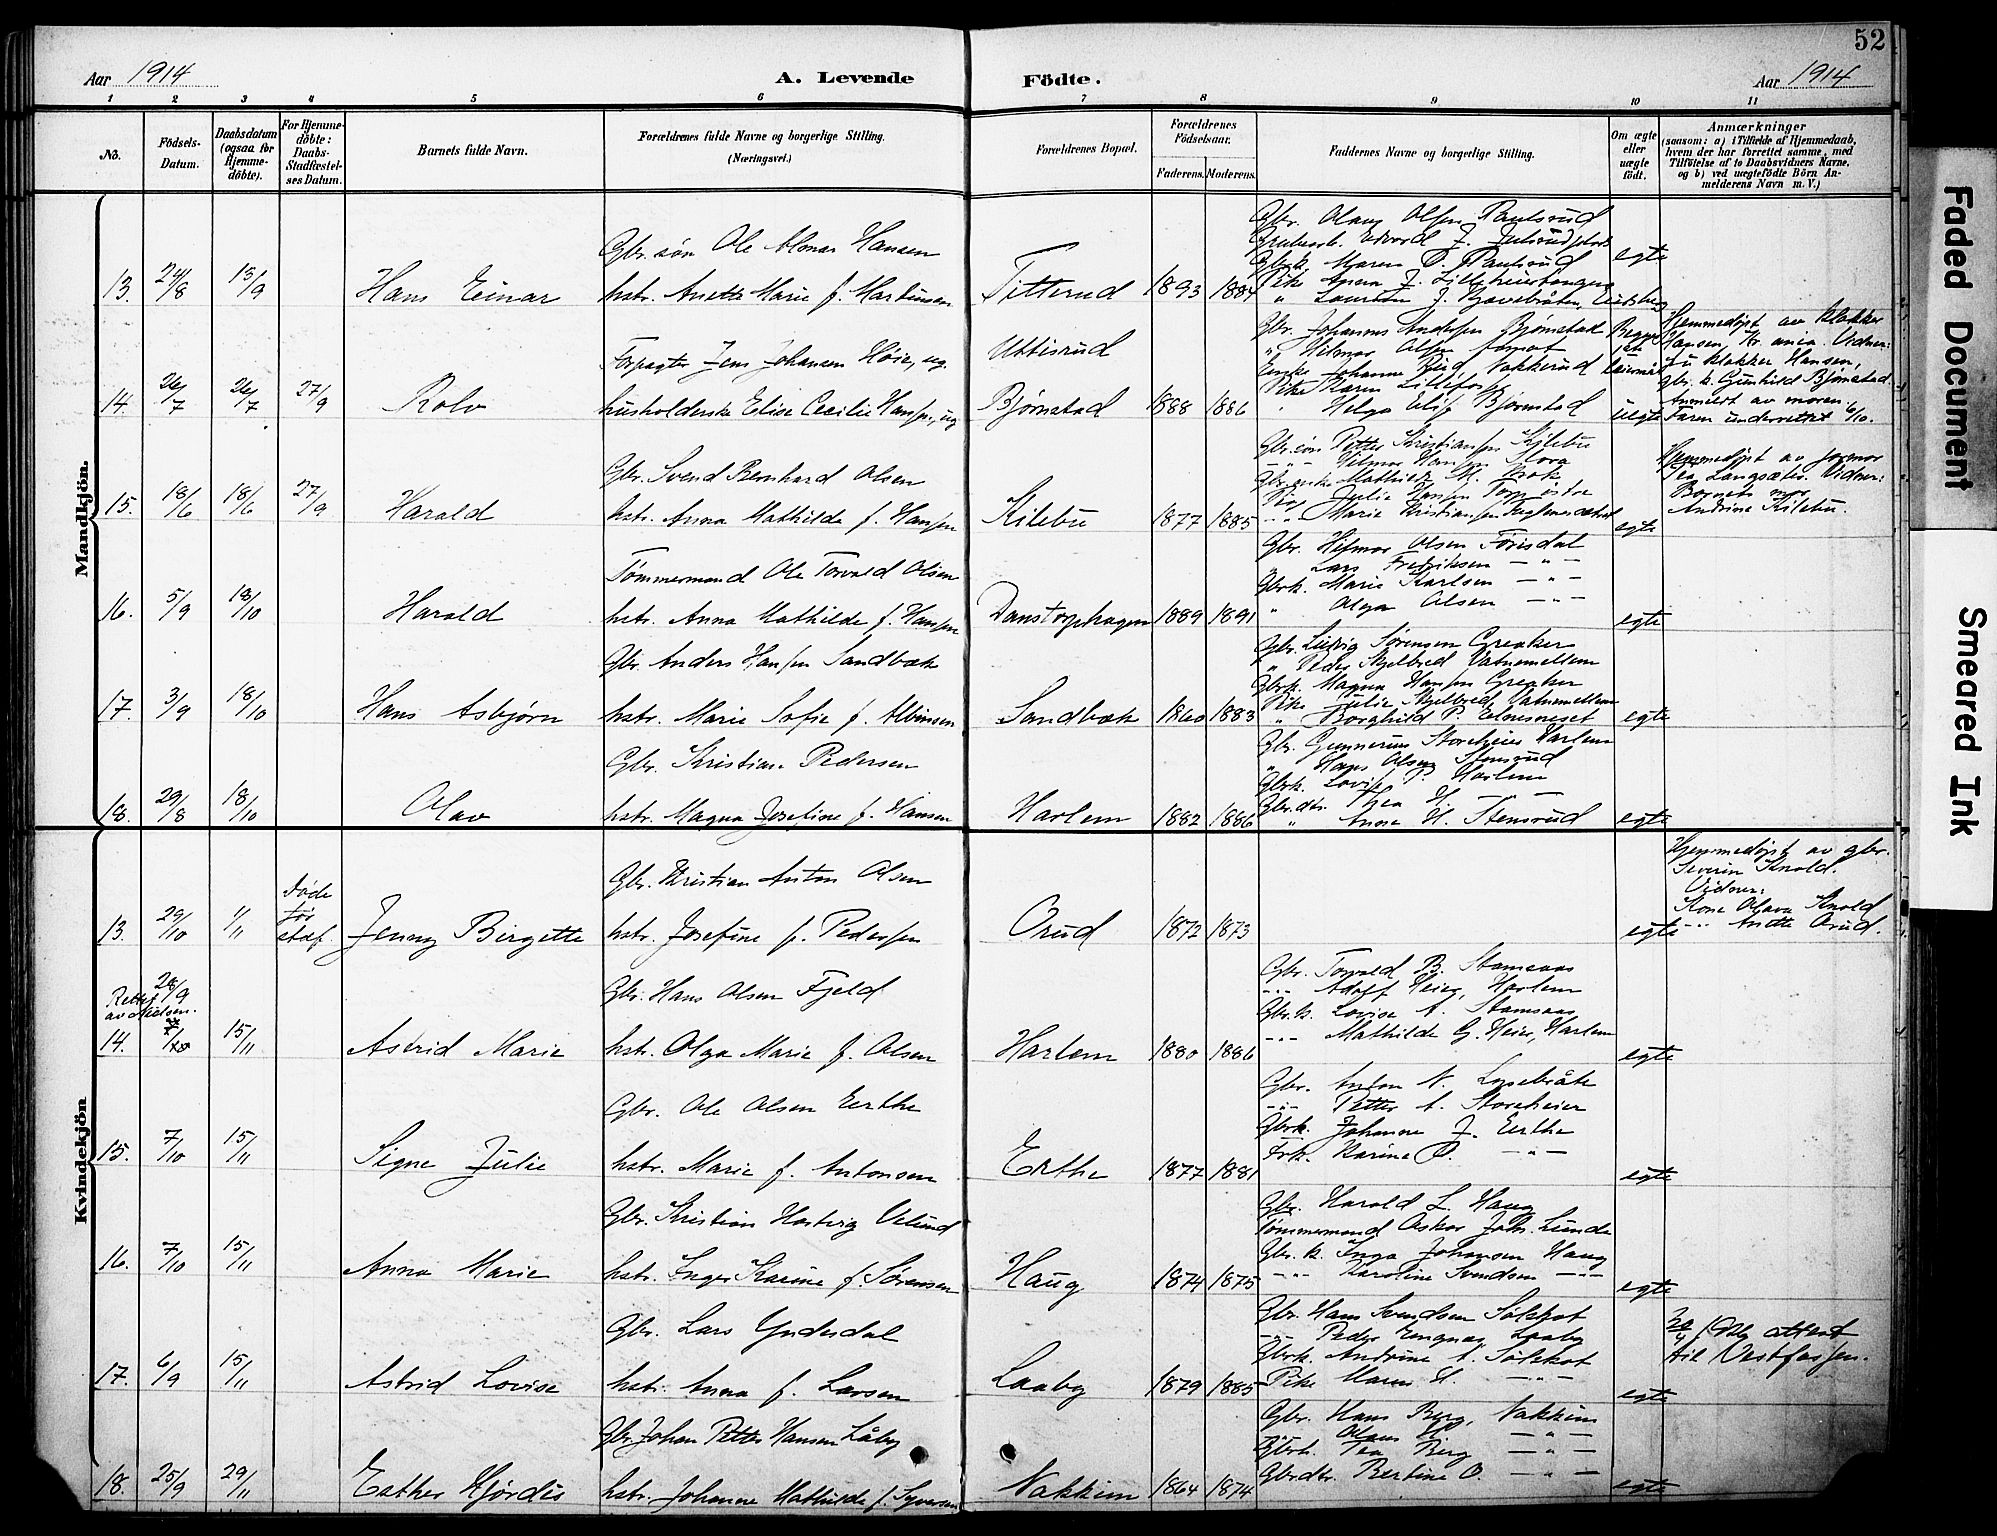 52
Aar 1914
A. Levende
Födte.
Aar 1914
1 2 3 4 5 6 7 8 9 10 11
No.
Födsels-
Datum.
Daabsdatum
(ogsaa for
Hjemme-
döbte).
For Hjemme-
döbte:
Daabs-
Stadfæstel-
ses Datum.
Barnets fulde Navn.
Forældrenes fulde Navne og borgerlige Stilling.
(Næringsvei.)
Forældrenes Bopæl.
Forældrenes
Födselsaar.
Faderens. Moderens.
Faddernes Navne og borgerlige Stilling.
Om ægte
eller
uægte
födt.
Anmærkninger
(saasom: a) i Tilfælde af Hjemmedaab,
hvem der har forrettet samme, med
Tilföielse af to Daabsvidners Navne,
og b) ved uægtefödte Börn An-
melderens Navn m. V.)
Mandkjön.
Gbr. søn Ole Hansen
13. 24/8 13/9 Hans Einar hstr. Anette Marie f. Martinsen Titterud 1893 1884 egte
Gbr. Olaus Olsen Paulsrud
Gbrk. Maren O. Paulsrud
Forpagter Jens Johansen Høie, ug. Ubbisrud
14. 26/7 26/7 27/9 Rolv husholderske Elise Cecilie Hansen, ug Bjørnstad 1888 1886 uegte
Gbr. Johannes Andersen Bjørnstad
" Hilmar Olsen
Enke Johanne Nakkerud
Pike Karen Lilletorp
" Helga Elise Bjørnstad
Hjemmedøpt av klokker
Hansen, Kr.ania. Vidner:
Fru klokker Hansen,
gbr.k. Gunhild Bjørnstad.
Anmeldt av moren.
Faren underrettet 6/10.
Gbr. Svend Bernhard Olsen
15. 18/6 18/6 27/9 Harald hstr. Anna Mathilde f. Hansen Kilebu 1877 1885 egte
Gbr.søn Petter Kristiansen Kilebu
Hjemmedøpt av formor
Tea Langsæter. Vidner:
Barnets mor
Andrine Kilebu.
Tømmermand Ole Torvald Olsen
16. 5/9 18/10 Harald hstr. Anna Mathilde f. Hansen Danstorphagen 1889 1891 egte
Gbr. Hilmar Olsen Førisdal
" Lars Fredriksen — " —
Gbrk. Marie Karlsen — " —
" Olga Olsen — " —
Gbr. Anders Hansen Sandbæk
17. 3/9 18/10 Hans Asbjørn hstr. Marie Sofie f. Albinsen Sandbæk 1860 1883 egte
Gbr. Ludvig Sørensen Greaker
" Peder Skjelbred Vatnemellem
Gbrk. Magna Hansen Greaker
Pike Julie Skjelbred, Vatnemellem
" Borghild P.
Gbr. Kristian Pedersen
18. 29/8 18/10 Olav hstr. Magna Josefine f. Hansen Harlem 1882 1886 egte
Gbr. Gunnerius Storeheier Harlem
" Hans Olsen Stensrud
Gbrk. Lovise P. Harlem
Gbr.dtr. Thea H. —
" Anna H. Stensrud
Kvindekjön
Gbr. Kristian Anton Olsen
13. 29/10 1/11 Døde før staf. Jenny Birgette hstr. Josefine f. Pedersen Orud 1872 1873 egte
Hjemmedøpt av gbr.
Severin Knold.
Vidner:
Kone Olava Knold
-"- Andte Orud.
28/9
Rettet
av Nielsen.
Gbr. Hans Olsen Fjeld
14. 15/11 Astrid Marie hstr. Olga Marie f. Olsen Harlem 1880 1886 egte
Gbr. Torvald B. Stamsaas
-"- Adolf Heier, Harlem
Gbr.k. Lovise A. Stamsaas
-"- Mathilde G. Heier, Harlem
Gbr. Ole Olsen Eerthe
15. 7/10 15/11 Signe Julie hstr. Marie f. Antonsen Erthe 1877 1881 egte
Gbr. Anton N. Lysebråte
-"- Petter A. Storeheier
Gbrk. Johanne J. Eerthe
Frk. Karine O. — " —
Gbr. Kristian Hartvig Velund
16. 7/10 15/11 Anna Marie hstr. Inger Karine f. Sørensen Haug 1874 1875 egte
Gbr. Harald L. Haug
Tømmermand Oskar Johs. Lunde
Gbr.k. Inga Johansen Haug
-"- Karoline Svendsen — " —
Gbr. Lars Yndesdal
17. 6/9 15/11 Astrid Lovise hstr. Anna f. Larsen Laaby 1879 1885 egte
Gbr. Hans Svendsen Solskot
-"- Peder Engnæs Laaby
Gbrk. Andrine A. Solskot
Pike Maren H. — " —
attest
til Vestfossen.
Gbr. Johan Petter Hansen Låby
18. 25/9 29/11 Esther Hjørdis hstr. Johanne Mathilde f. Syversen Nakkim 1864 1874 egte
Gbr. Hans Berg, Nakkim
" Olaus H. — " —
Gbrk. Tea Berg — " —
Gbrdtr. Bertine O. — " —
Faded Document
Smeared Ink